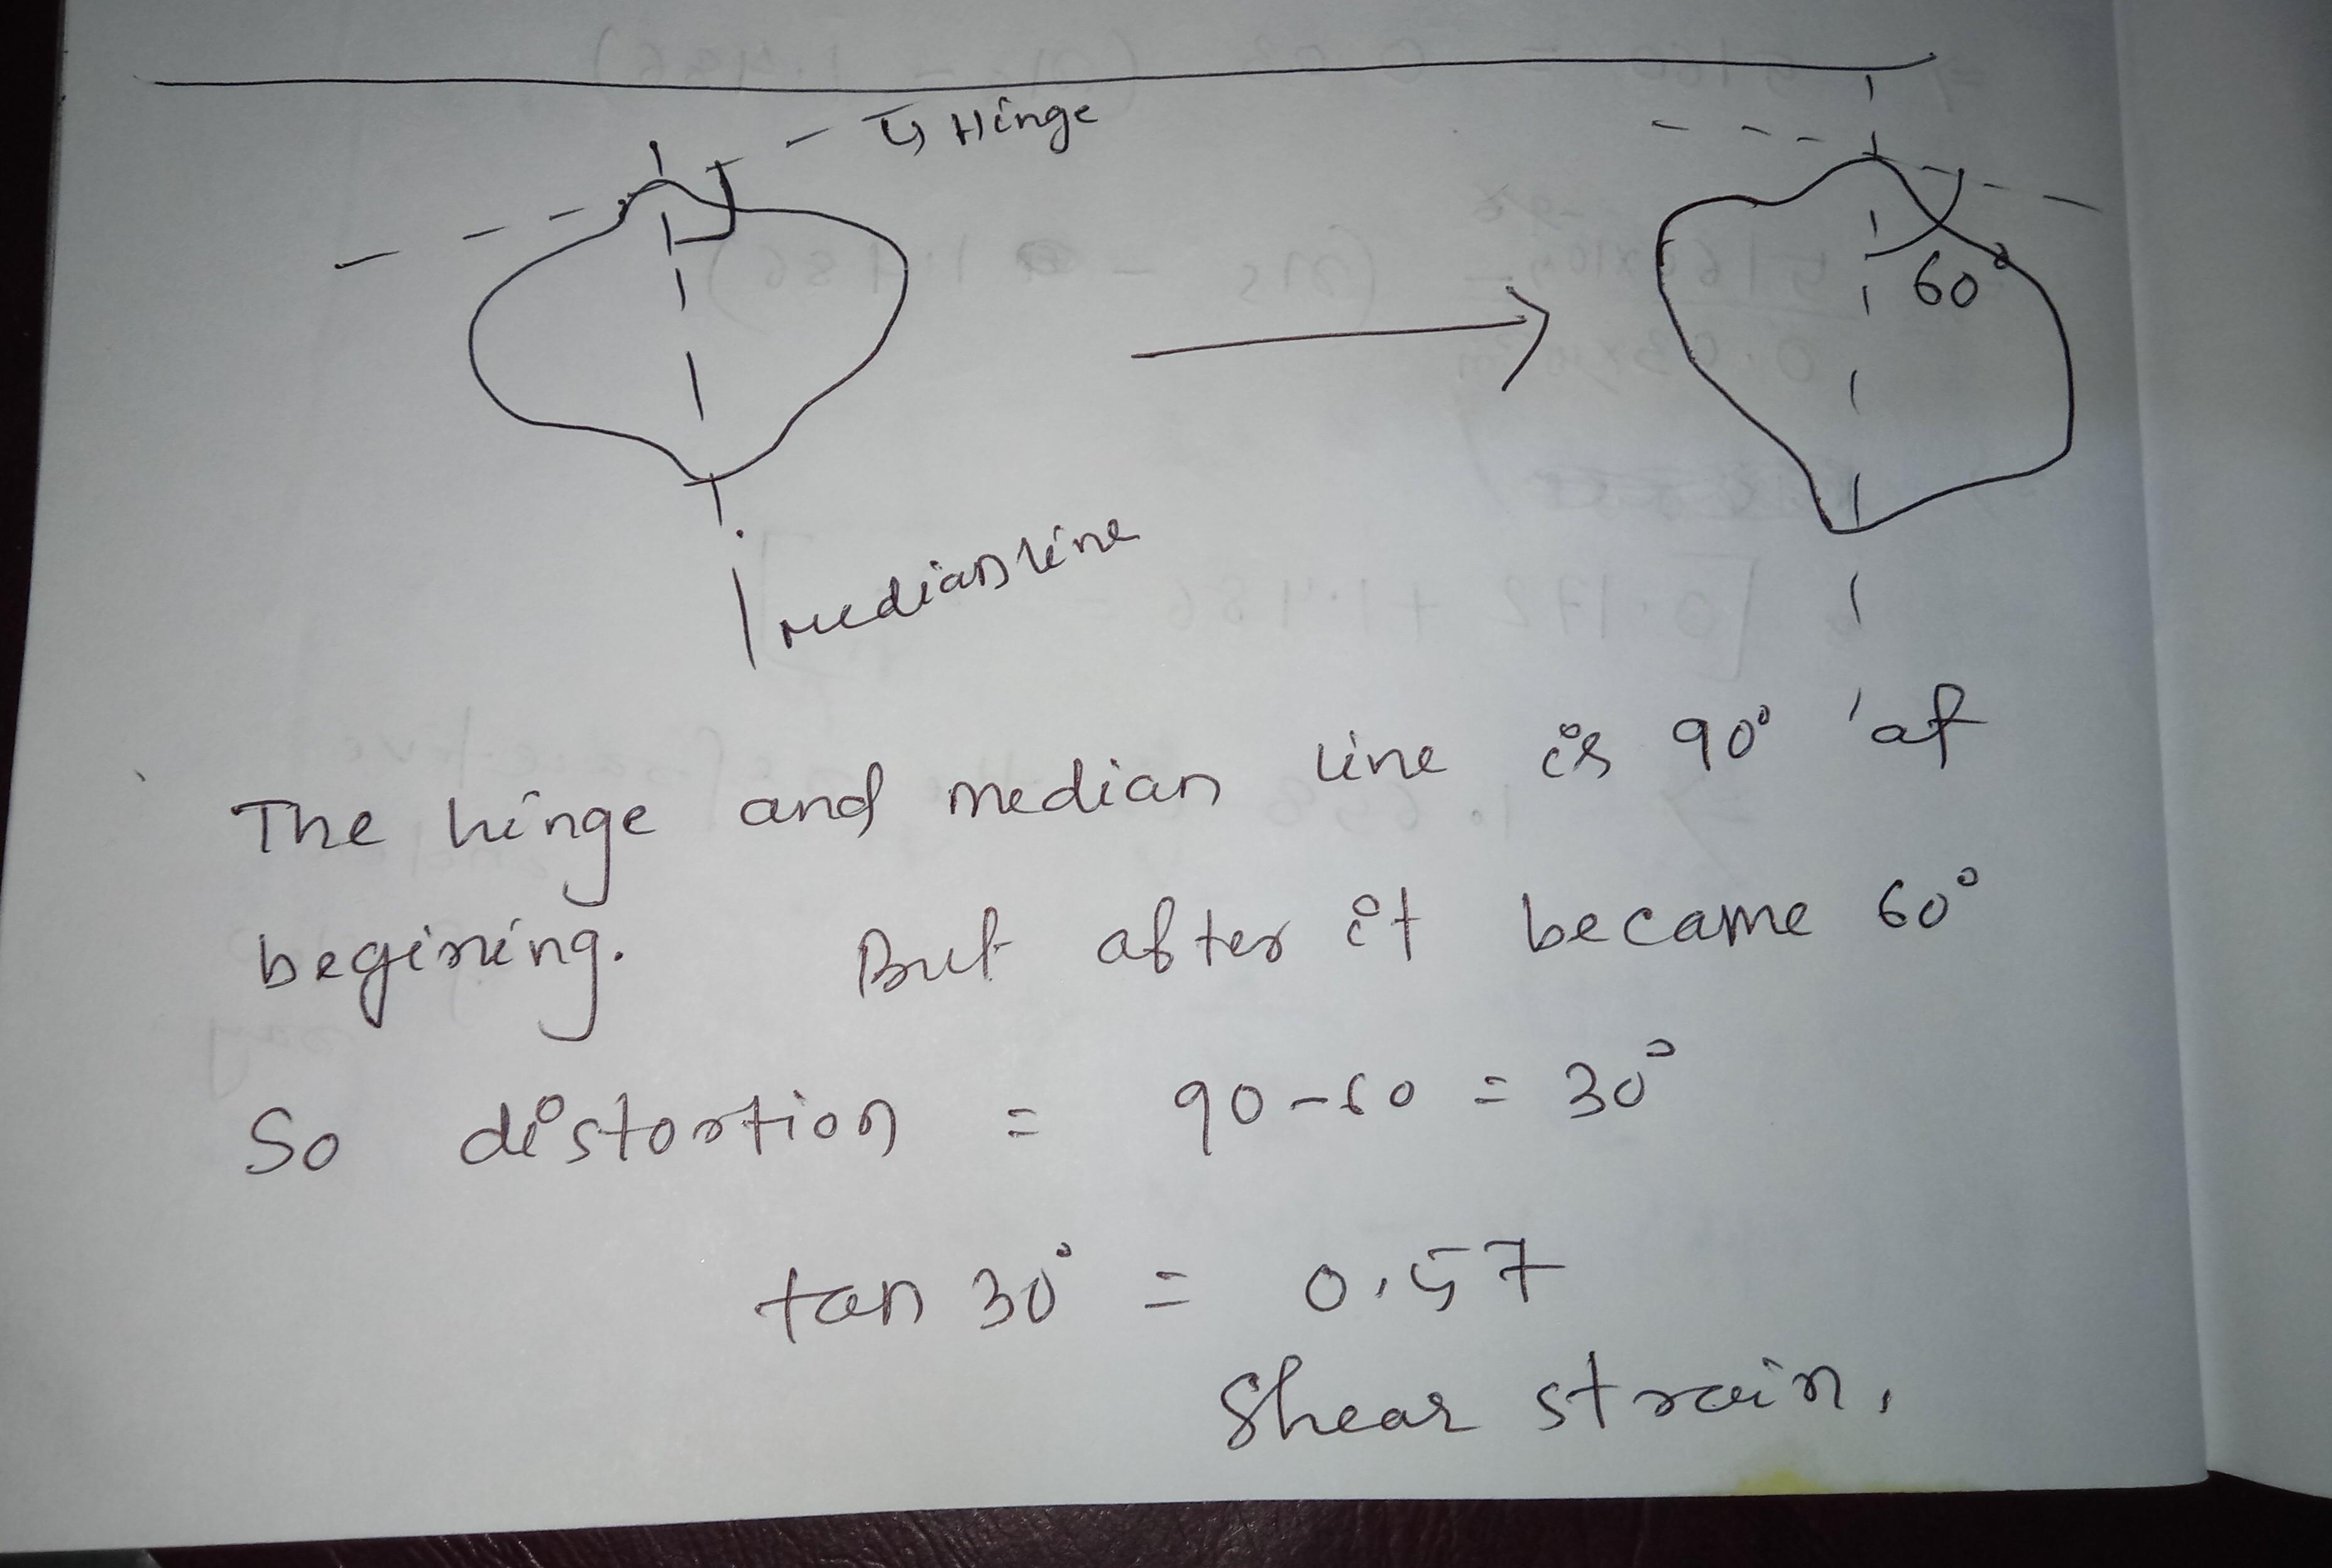 Hinge
60°
median line
The hinge and median line is 90° at
begining. But after it became 60°
So distortion = 90-60 = 30°
tan 30° = 0.57
Shear strain.